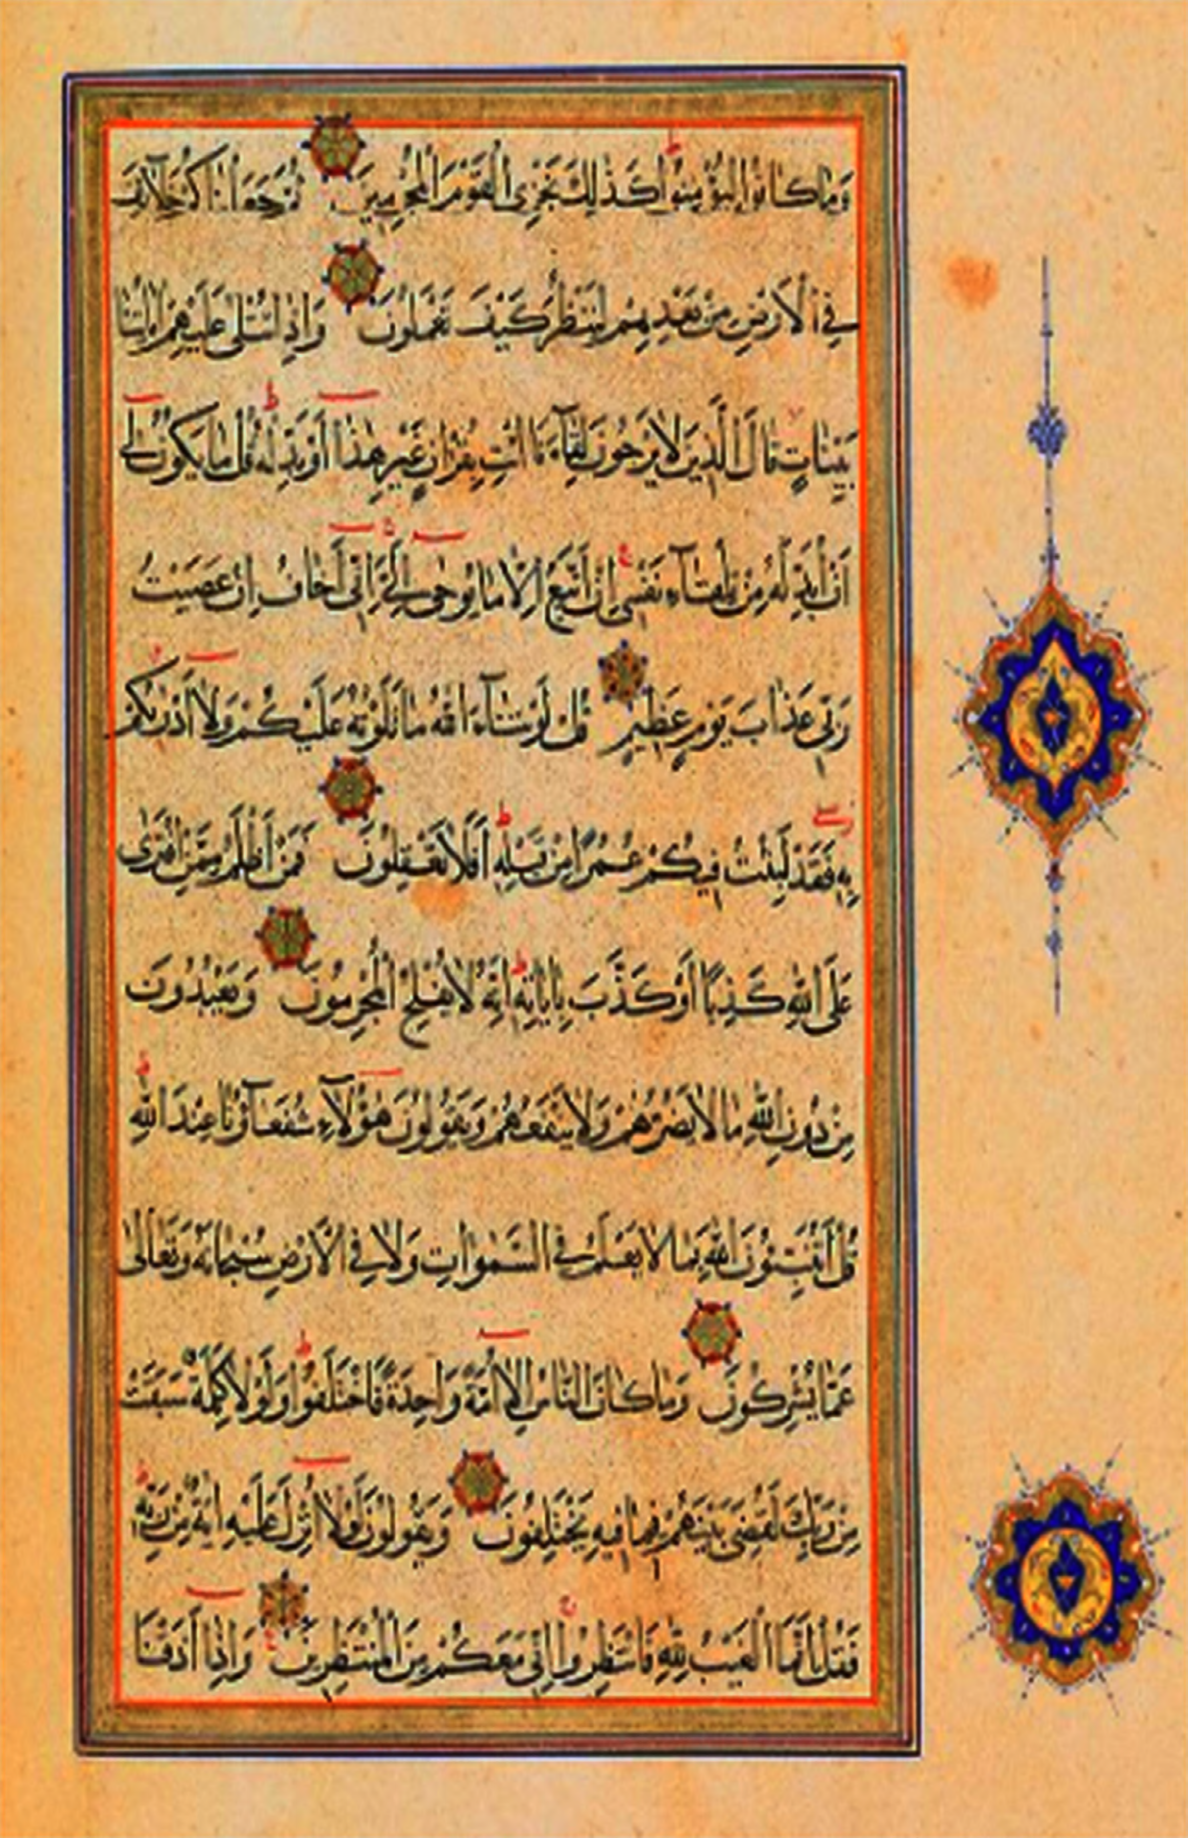 وَمَا كَانُوا لِيُؤْمِنُوا كَذٰلِكَ نَجْزِى الْقَوْمَ الْمُجْرِمِينَ ثُمَّ جَعَلْنَاكُمْ خَلَآئِفَ
فِى الْاَرْضِ مِنْ بَعْدِهِمْ لِنَنْظُرَ كَيْفَ تَعْمَلُونَ وَاِذَا تُتْلٰى عَلَيْهِمْ اٰيَاتُنَا
بَيِّنَاتٍ قَالَ الَّذِينَ لَا يَرْجُونَ لِقَآءَنَا ائْتِ بِقُرْاٰنٍ غَيْرِ هٰذَا اَوْ بَدِّلْهُ قُلْ مَا يَكُونُ لِى
اَنْ اُبَدِّلَهُ مِنْ تِلْقَآءِ نَفْسِى اِنْ اَتَّبِعُ اِلَّا مَا يُوحٰى اِلَىَّ اِنِّى اَخَافُ اِنْ عَصَيْتُ
رَبِّى عَذَابَ يَوْمٍ عَظِيمٍ قُلْ لَوْ شَآءَ اللّٰهُ مَا تَلَوْتُهُ عَلَيْكُمْ وَلَا اَدْرٰيكُمْ
بِهِ فَقَدْ لَبِثْتُ فِيكُمْ عُمُرًا مِنْ قَبْلِهِ اَفَلَا تَعْقِلُونَ فَمَنْ اَظْلَمُ مِمَّنِ افْتَرٰى
عَلَى اللّٰهِ كَذِبًا اَوْ كَذَّبَ بِاٰيَاتِهِ اِنَّهُ لَا يُفْلِحُ الْمُجْرِمُونَ وَيَعْبُدُونَ
مِنْ دُونِ اللّٰهِ مَا لَا يَضُرُّهُمْ وَلَا يَنْفَعُهُمْ وَيَقُولُونَ هٰؤُلَآءِ شُفَعَآؤُنَا عِنْدَ اللّٰهِ
قُلْ اَتُنَبِّئُونَ اللّٰهَ بِمَا لَا يَعْلَمُ فِى السَّمٰوَاتِ وَلَا فِى الْاَرْضِ سُبْحَانَهُ وَتَعَالٰى
عَمَّا يُشْرِكُونَ وَمَا كَانَ النَّاسُ اِلَّا اُمَّةً وَاحِدَةً فَاخْتَلَفُوا وَلَوْلَا كَلِمَةٌ سَبَقَتْ
مِنْ رَبِّكَ لَقُضِىَ بَيْنَهُمْ فِيمَا فِيهِ يَخْتَلِفُونَ وَيَقُولُونَ لَوْلَا اُنْزِلَ عَلَيْهِ اٰيَةٌ مِنْ رَبِّهِ
فَقُلْ اِنَّمَا الْغَيْبُ لِلّٰهِ فَانْتَظِرُوا اِنِّى مَعَكُمْ مِنَ الْمُنْتَظِرِينَ وَاِذَا اَذَقْنَا